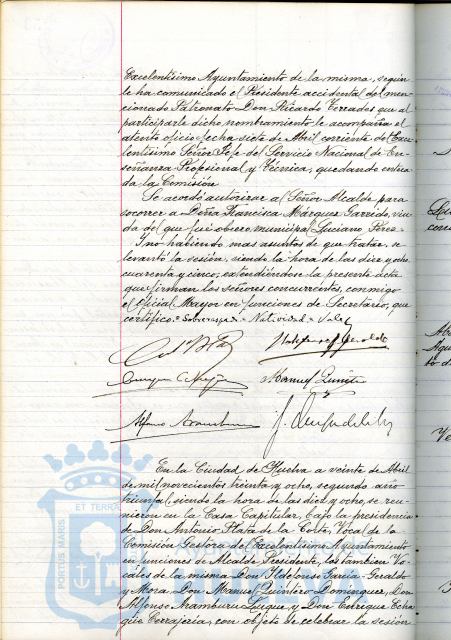 Excelentísimo Ayuntamiento de la misma, según
le ha comunicado el Presidente accidental del men-
cionado Patronato Don Ricardo Terrades que al
participarle dicho nombramiento le acompaña el
atento oficio fecha siete de Abril corriente del Exce-
lentísimo Señor Jefe del Servicio Nacional de En-
señanza Profesional y Técnica, quedando entera-
da la Comisión
Se acordó autorizar al Señor Alcalde para
socorrer a Doña Francisca Márquez Garrido, viu-
da del que fué obrero municipal Luciano Pérez.
Y no habiendo mas asuntos de que tratar, se
levantó la sesión, siendo la hora de las diez y ocho
cuarenta y cinco; extendiéndose la presente acta
que firman los señores concurrentes, conmigo
el Oficial Mayor en funciones de Secretario, que
certifico.= Natividad = Vale
Manuel Quintero
Alfonso Aramburu
En la Ciudad de Huelva a veinte de Abril
de mil novecientos treinta y ocho, segundo año
triunfal, siendo la hora de las diez y ocho, se reu-
nieron en la Casa Capitular, bajo la presidencia
de Don Antonio Plata de la Corte, Vocal de la
Comisión Gestora del Excelentísimo Ayuntamiento
en funciones de Alcalde Presidente, los tambien Vo-
cales de la misma Don Ildefonso García-Geraldo
y Mora, Don Manuel Quintero Dominguez, Don
Alfonso Aramburu Luque y Don Enrique Echa
güe Torrajería, con objeto de celebrar la sesión
ET TERRAE
PORTUS MARIS